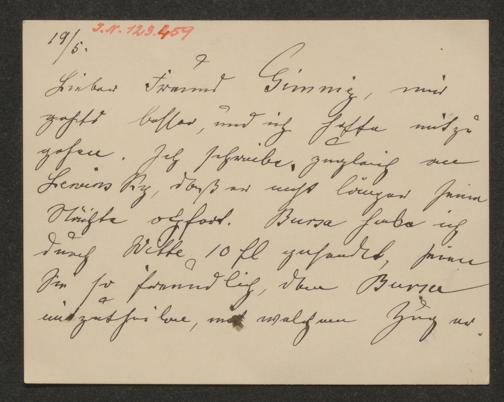 19/5.
J.N. 123.459
Lieber Freund Gimnig, mir
geht's besser, und ich hoffe mitzu
gehen. Ich schreibe zugleich an
Lewinsky, daß er nicht länger seine
Nächte opfert. Bursa habe ich
durch Witte 10 fl gesendet, seien
Sie so freundlich, dem Bursa
mitzutheilen, mit welchem Zug er